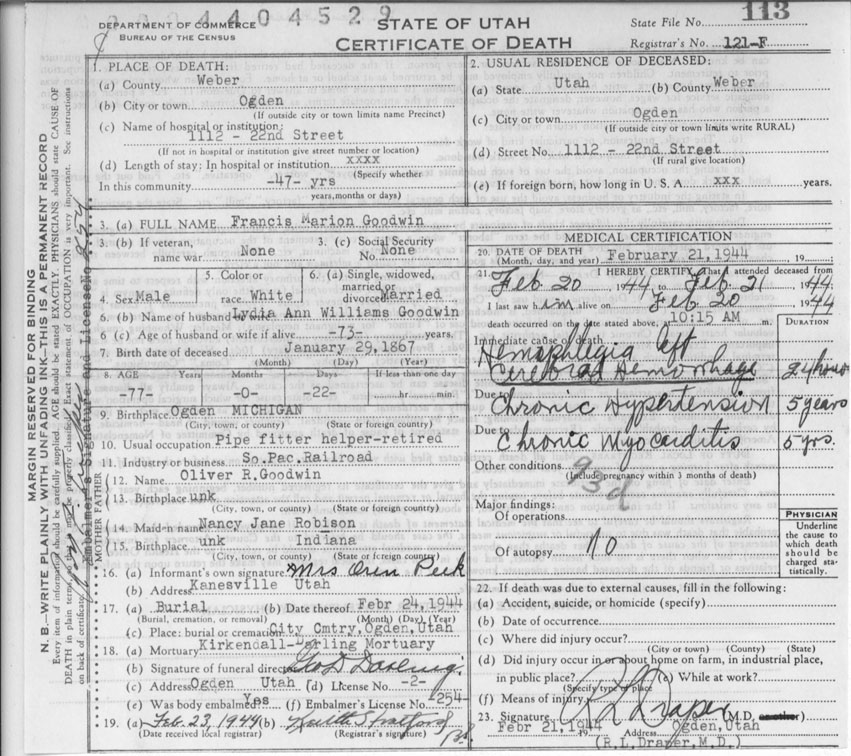 2904404529
113
DEPARTMENT OF COMMERCE
BUREAU OF THE CENSUS
STATE OF UTAH
CERTIFICATE OF DEATH
State File No.
Registrar's No. 121-F
MARGIN RESERVED FOR BINDING
N. B.—WRITE PLAINLY WITH UNFADING INK—THIS IS A PERMANENT RECORD
Every item of information should be carefully supplied. AGE should be stated EXACTLY. PHYSICIANS should state CAUSE OF
DEATH in plain terms, that it may be properly classified. Exact statement of OCCUPATION is very important. See instructions
on back of certificate.
Embalmer's Signature and License No. 254
1. PLACE OF DEATH:
(a) County Weber
(b) City or town Ogden
(If outside city or town limits name Precinct)
(c) Name of hospital or institution:
1112 - 22nd Street
(If not in hospital or institution give street number or location)
(d) Length of stay: In hospital or institution xxxx
(Specify whether
In this community -47- yrs
years, months or days)
2. USUAL RESIDENCE OF DECEASED:
(a) State Utah (b) County Weber
(c) City or town Ogden
(If outside city or town limits write RURAL)
(d) Street No. 1112 - 22nd Street
(If rural give location)
(e) If foreign born, how long in U. S. A. xxx years.
3. (a) FULL NAME Francis Marion Goodwin
3. (b) If veteran, name war None
3. (c) Social Security No. None
4. Sex Male
5. Color or race White
6. (a) Single, widowed, married or divorced Married
6. (b) Name of husband Lydia Ann Williams Goodwin
6. (c) Age of husband or wife if alive -73- years.
7. Birth date of deceased January 29, 1867
(Month) (Day) (Year)
8. AGE Years Months Days If less than one day
-77- -0- -22- hr. min.
9. Birthplace Ogden MICHIGAN
(City, town, or county) (State or foreign country)
10. Usual occupation Pipe fitter helper-retired
11. Industry or business So.Pac.Railroad
FATHER
12. Name Oliver R.Goodwin
13. Birthplace unk
(City, town, or county) (State or foreign country)
MOTHER
14. Maiden name Nancy Jane Robison
15. Birthplace unk Indiana
(City, town, or county) (State or foreign country)
16. (a) Informant's own signature Mrs Oren Peek
(b) Address Kanesville Utah
17. (a) Burial (b) Date thereof Febr 24, 1944
(Burial, cremation, or removal) (Month) (Day) (Year)
(c) Place: burial or cremation City Cmtry, Ogden, Utah
18. (a) Mortuary Kirkendall-Darling Mortuary
(b) Signature of funeral director
(c) Address Ogden Utah (d) License No. -2-
(e) Was body embalmed? Yes (f) Embalmer's License No. -254-
19. (a) Feb. 23, 1944 (b)
(Date received local registrar) (Registrar's signature)
MEDICAL CERTIFICATION
20. DATE OF DEATH February 21, 1944 19
(Month, day, and year)
21. I HEREBY CERTIFY That I attended deceased from
Feb 20 1944 to Feb 21 1944
I last saw him alive on Feb 20 1944
death occurred on the date stated above, at 10:15 AM m.
DURATION
Immediate cause of death
Hemiphlegia left
Cerebral Hemorrhage 24 hours
Due to Chronic Hypertension 5 years
Due to Chronic Myocarditis 5 yrs.
Other conditions
(Include pregnancy within 3 months of death)
93d
Major findings:
Of operations
Of autopsy no
PHYSICIAN
Underline
the cause to
which death
should be
charged sta-
tistically.
22. If death was due to external causes, fill in the following:
(a) Accident, suicide, or homicide (specify)
(b) Date of occurrence
(c) Where did injury occur?
(City or town) (County) (State)
(d) Did injury occur in or about home on farm, in industrial place,
in public place? (e) While at work?
(Specify type of place
(f) Means of injury
23. Signature R L Draper (M.D. or other)
Febr 21, 1944 19 Address Ogden, Utah
(R.L, Draper, M.D.)